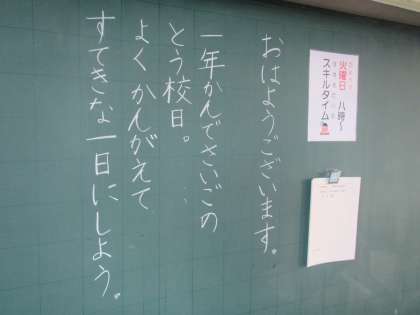 おはようございます。
一年かんでさいごの
とう校日。
よくかんがえて
すてきな一日にしよう。
火曜日 八時～
スキルタイム